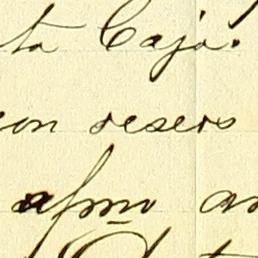 ta Caja.
con deseos
afmo am